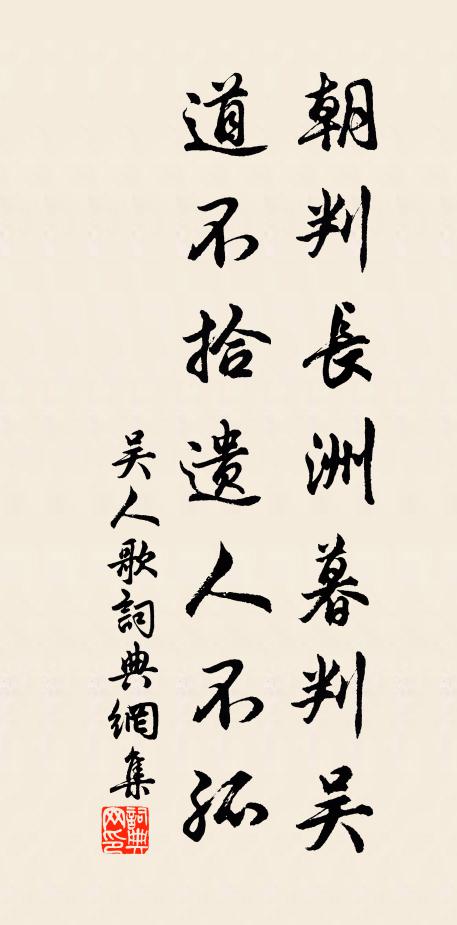 朝判長洲暮判吴
道不拾遗人不孤
吴人歌詞典網集
詞典网印